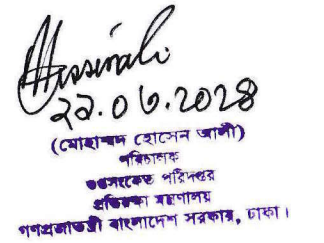 ২৯.০৬.২০২৪
(মোহাম্মদ হোসেন আলী)
পরিচালক
গুপ্তসংকেত পরিদপ্তর
প্রতিরক্ষা মন্ত্রণালয়
গণপ্রজাতন্ত্রী বাংলাদেশ সরকার, ঢাকা।